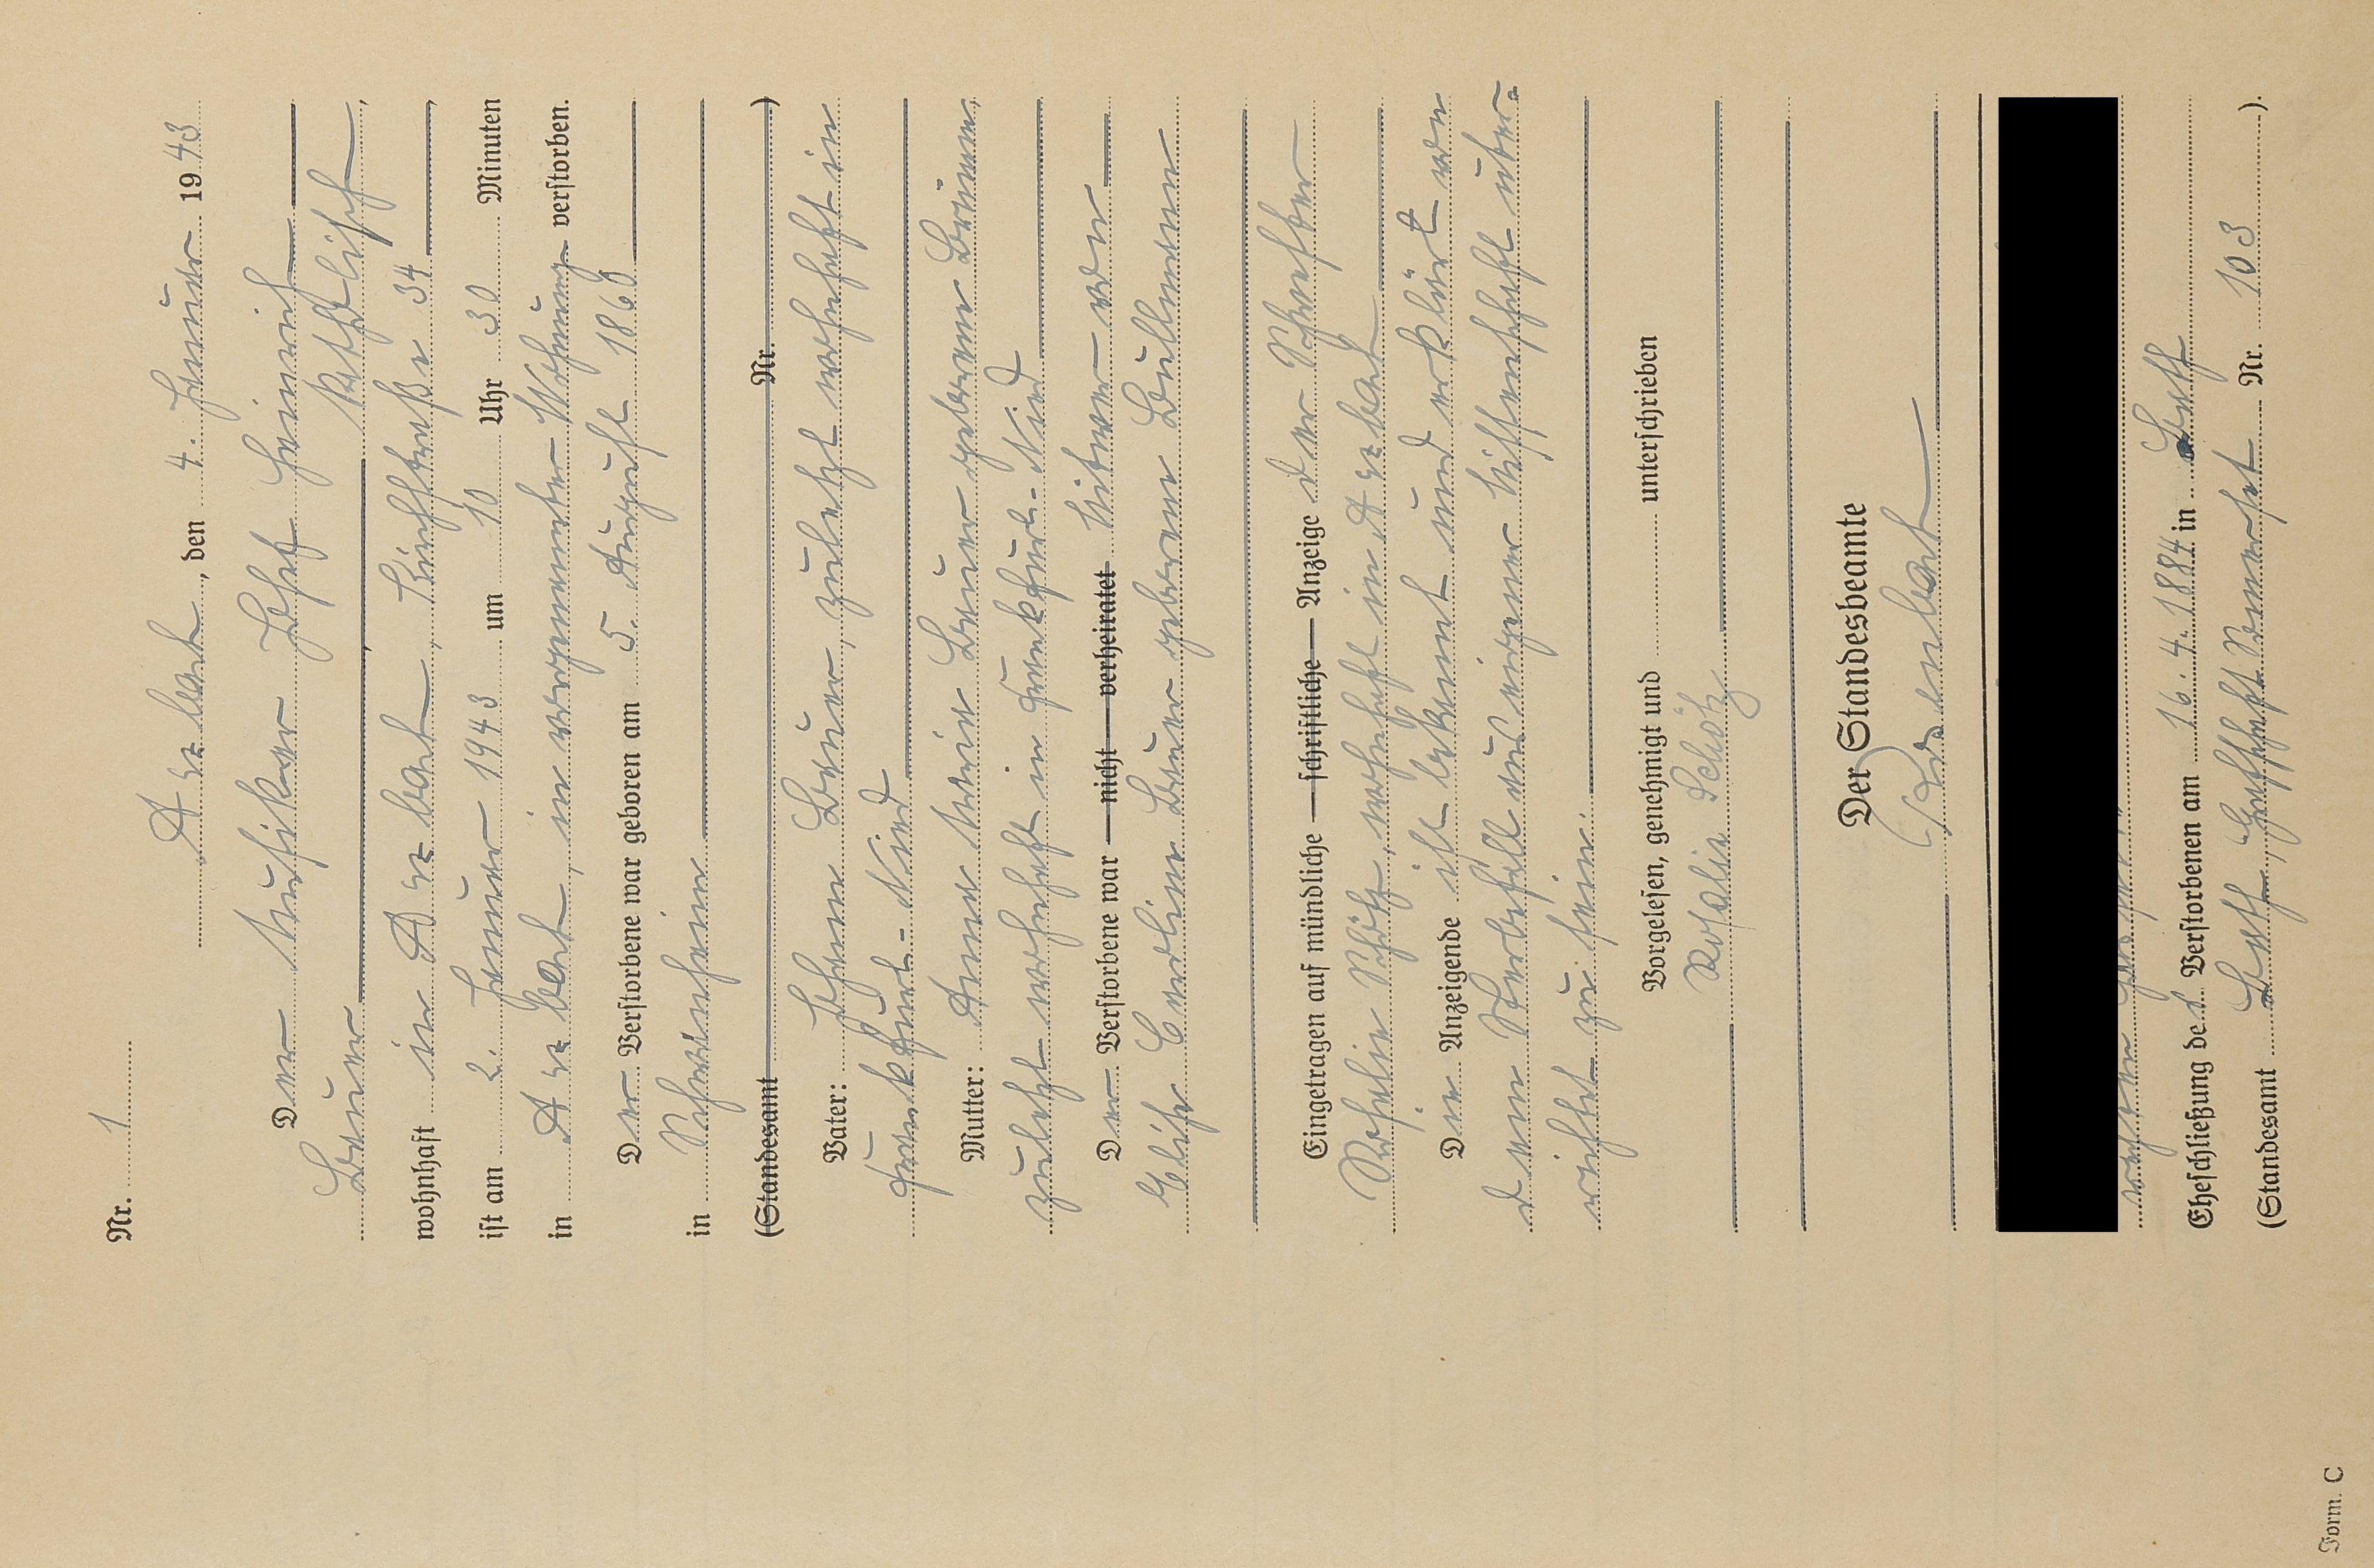 Nr. 1
Arzbach, den 4. Januar 1943
Der Musiker Josef Heinrich
Bauer katholisch,
wohnhaft in Arzbach, Kirchstraße 34,
ist am 2. Januar 1943 um 10 Uhr 30 Minuten
in Arzbach, in vorgenannter Wohnung verstorben.
Der Verstorbene war geboren am 5. August 1860
in Schwanheim
(Standesamt Nr. )
Vater: Johann Bauer, zuletzt wohnhaft in
Frankfurt-Nied
Mutter: Anna Maria Bauer geborene
zuletzt wohnhaft in Frankfurt-Nied
Der Verstorbene war — nicht — verheiratet Witwer von
Elise Bauer geborene
Eingetragen auf mündliche — schriftliche — Anzeige der
Rosalie Schötz, wohnhaft in Arzbach
Die Anzeigende ist bekannt und erklärt von
dem Sterbefall aus eigener Wissenschaft unter-
richtet zu sein.
Vorgelesen, genehmigt und unterschrieben
Rosalie Schötz
Der Standesbeamte
Eheschließung des Verstorbenen am 16. 4. 1884 in Bath
(Standesamt Bath, Grafschaft Somerset Nr. 103 ).
Form. C